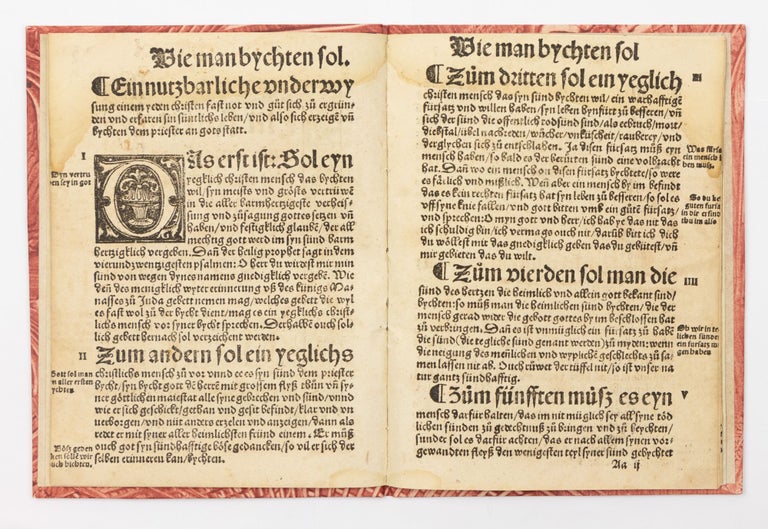 Wie man bychten sol.
¶Ein nutzbarliche vnderwy
sung einem yeden christen fast not vnd güt sich zü ergrün-
den vnd erfaren sin süntliche leben/vnd also sich erzeigē vn̄
bychten dem priester an gots statt.
I
Syn vertru
en sey in got
DAs erst ist: Sol eyn
yegklich christen mensch das bychten
wil/syn meists vnd grösts vertruwē
in die aller barmhertzigeste verheis-
sung vnd züsagung gottes setzen vn̄
haben/vnd festigklich glaubē/der all
mechtig gott werd im syn sünd barm
hertzigklich vergeben. Dañ der heilig prophet sagt in dem
vierundzwentzigesten psalmen: O her du würdist mir min
sünd von wegen dynes namens gnedigklich vergebē. Wie
den des menigklich wyter erinnerung vß des künigs Ma-
nasses zü Juda gebett nemen mag/welches gebett die wyl
es fast wol zü der bycht dient/mag es ein yegklichs christ-
lichs mensch vor syner bycht sprechen. Derhalbē ouch sol-
lich gebett hernach sol verzeichnet werden.
II
Gott sol man
am aller ersten
bychtē.
Zum andern sol ein yeglichs
christliches mensch zü vor vnnd ee es syn sünd dem priester
bycht/syn bycht gott dē herrē mit grossem flyß thün vn̄ sy-
ner göttlichen maiestat alle syne gebrechen vnd sünd/vnnd
wie er sich geschickt/gethan vnd geist befindt/klar vnd vn
uerborgen/vnd nüt anders erzelen vnd anzeigen/dann als
redet er mit syner aller heimlichsten fründ einem. Er müß
ouch vn got sündthafftige böse gedancken/so vil er sich der
selben erinneren kan/bychten.
Bösz geden
cken söllē wir
uch bichten.
Wie man bychten sol
¶Züm dritten sol ein yeglich
III
christen mensch das syn sünd bychten wil/ein warhafftigē
fürsatz vnd willen haben/syn leben hynfürt zü besseren/vn̄
sich der sünd die offenlich todsünd sind/als eebruch/mort/
diebstal/übel nachreden/wücher/vnküscheit/zauberey/vnd
derglychen sich zü entschlahen. Ja disen fürsatz müß eyn
mensch haben/so bald es der berürten sünd eine volbracht
hat. Dañ wo ein mensch on disen fürsatz bychtete/so were
es färlich vnd mißlich. Wen aber ein mensch by im befindt
das es kein rechten fürsatz hat syn leben zü besseren/so sol es
vff syne knie fallen/vnd gott bitten vmb ein gütē fürsatz/
vnd sprechen: O myn gott vnd herr/ich hab ye das nit das
ich schuldig bin/ich vermag ouch nit/darüb bitt ich dich
du wöllest mit das gnedigklich geben das du gebütest/vn̄
mir gebieten das du wilt.
Was fürsa
ein mensch
ben müß.
So du ke
guten fürsa
in dir erfind
thu im also
¶Züm vierden sol man die
IIII
sünd des hertzen die heimlich vnd allein gott bekant sind/
bychten: so müß man die heimlichen sünd bychten/die der
mensch gerad wider die gebott gottes by im beschlossen hat
zü verbringen. Dañ es ist vnmüglich ein fürsatz zü habē
die sünd (die tegliche sünd genant werden) zü myden: wenn
die neigung des menlichen vnd wyplichē geschlechts zü sa-
men lassen nit ab. Ouch rüwet der tüffel nit/so ist vnser na
tur gantz sündhafftig.
Ob wir in te
lichen sünden
ein fursatz mö
gen haben
¶Züm fünfften müsz es eyn
V
mensch darfür halten/das im nit müglich sey all syne töd
lichen sünden zü gedechtnuß zü bringen vnd zü beychten/
sunder sol es darfür achten/das er nach allem synen vor-
gewandten fleyß den wenigesten teyl syner sünd gebychtet
Aa ij